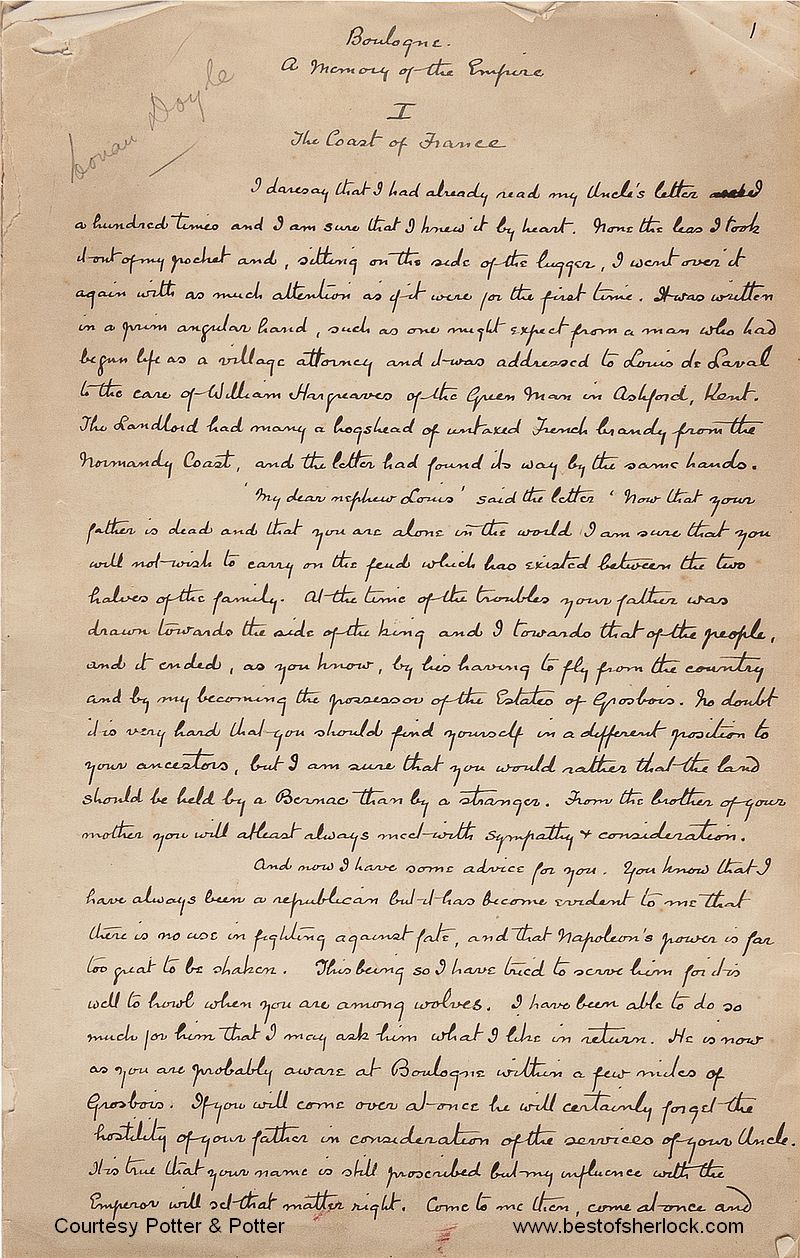 1
Boulogne.
A Memory of the Empire
I
The Coast of France
Conan Doyle
I daresay that I had already read my Uncle's letter
a hundred times and I am sure that I knew it by heart. None the less I took
it out of my pocket and, sitting on the side of the lugger, I went over it
again with as much attention as if it were for the first time. It was written
in a prim angular hand, such as one might expect from a man who had
begun life as a village attorney and it was addressed to Louis de Laval
to the care of William Hargreaves of the Green Man in Ashford, Kent.
The Landlord had many a hogshead of untaxed French brandy from the
Normandy Coast, and the letter had found its way by the same hands.
'My dear nephew Louis' said the letter 'Now that your
father is dead and that you are alone in the world I am sure that you
will not wish to carry on the feud which has existed between the two
halves of the family. At the time of the troubles your father was
drawn towards the side of the king and I towards that of the people,
and it ended, as you know, by his having to fly from the country
and by my becoming the possessor of the Estates of Grosbois. No doubt
it is very hard that you should find yourself in a different position to
your ancestors, but I am sure that you would rather that the land
should be held by a Bernac than by a stranger. From the brother of your
mother you will at least always meet with sympathy & consideration.
And now I have some advice for you. You know that I
have always been a republican but it has become evident to me that
there is no use in fighting against fate, and that Napoleon's power is far
too great to be shaken. This being so I have tried to serve him for it is
well to howl when you are among wolves. I have been able to do so
much for him that I may ask him what I like in return. He is now
as you are probably aware at Boulogne within a few miles of
Grosbois. If you will come over at once he will certainly forget the
hostility of your father in consideration of the services of your Uncle.
It is true that your name is still proscribed but my influence with the
Emperor will set that matter right. Come to me then, come at once and
Courtesy Potter & Potter
www.bestofsherlock.com